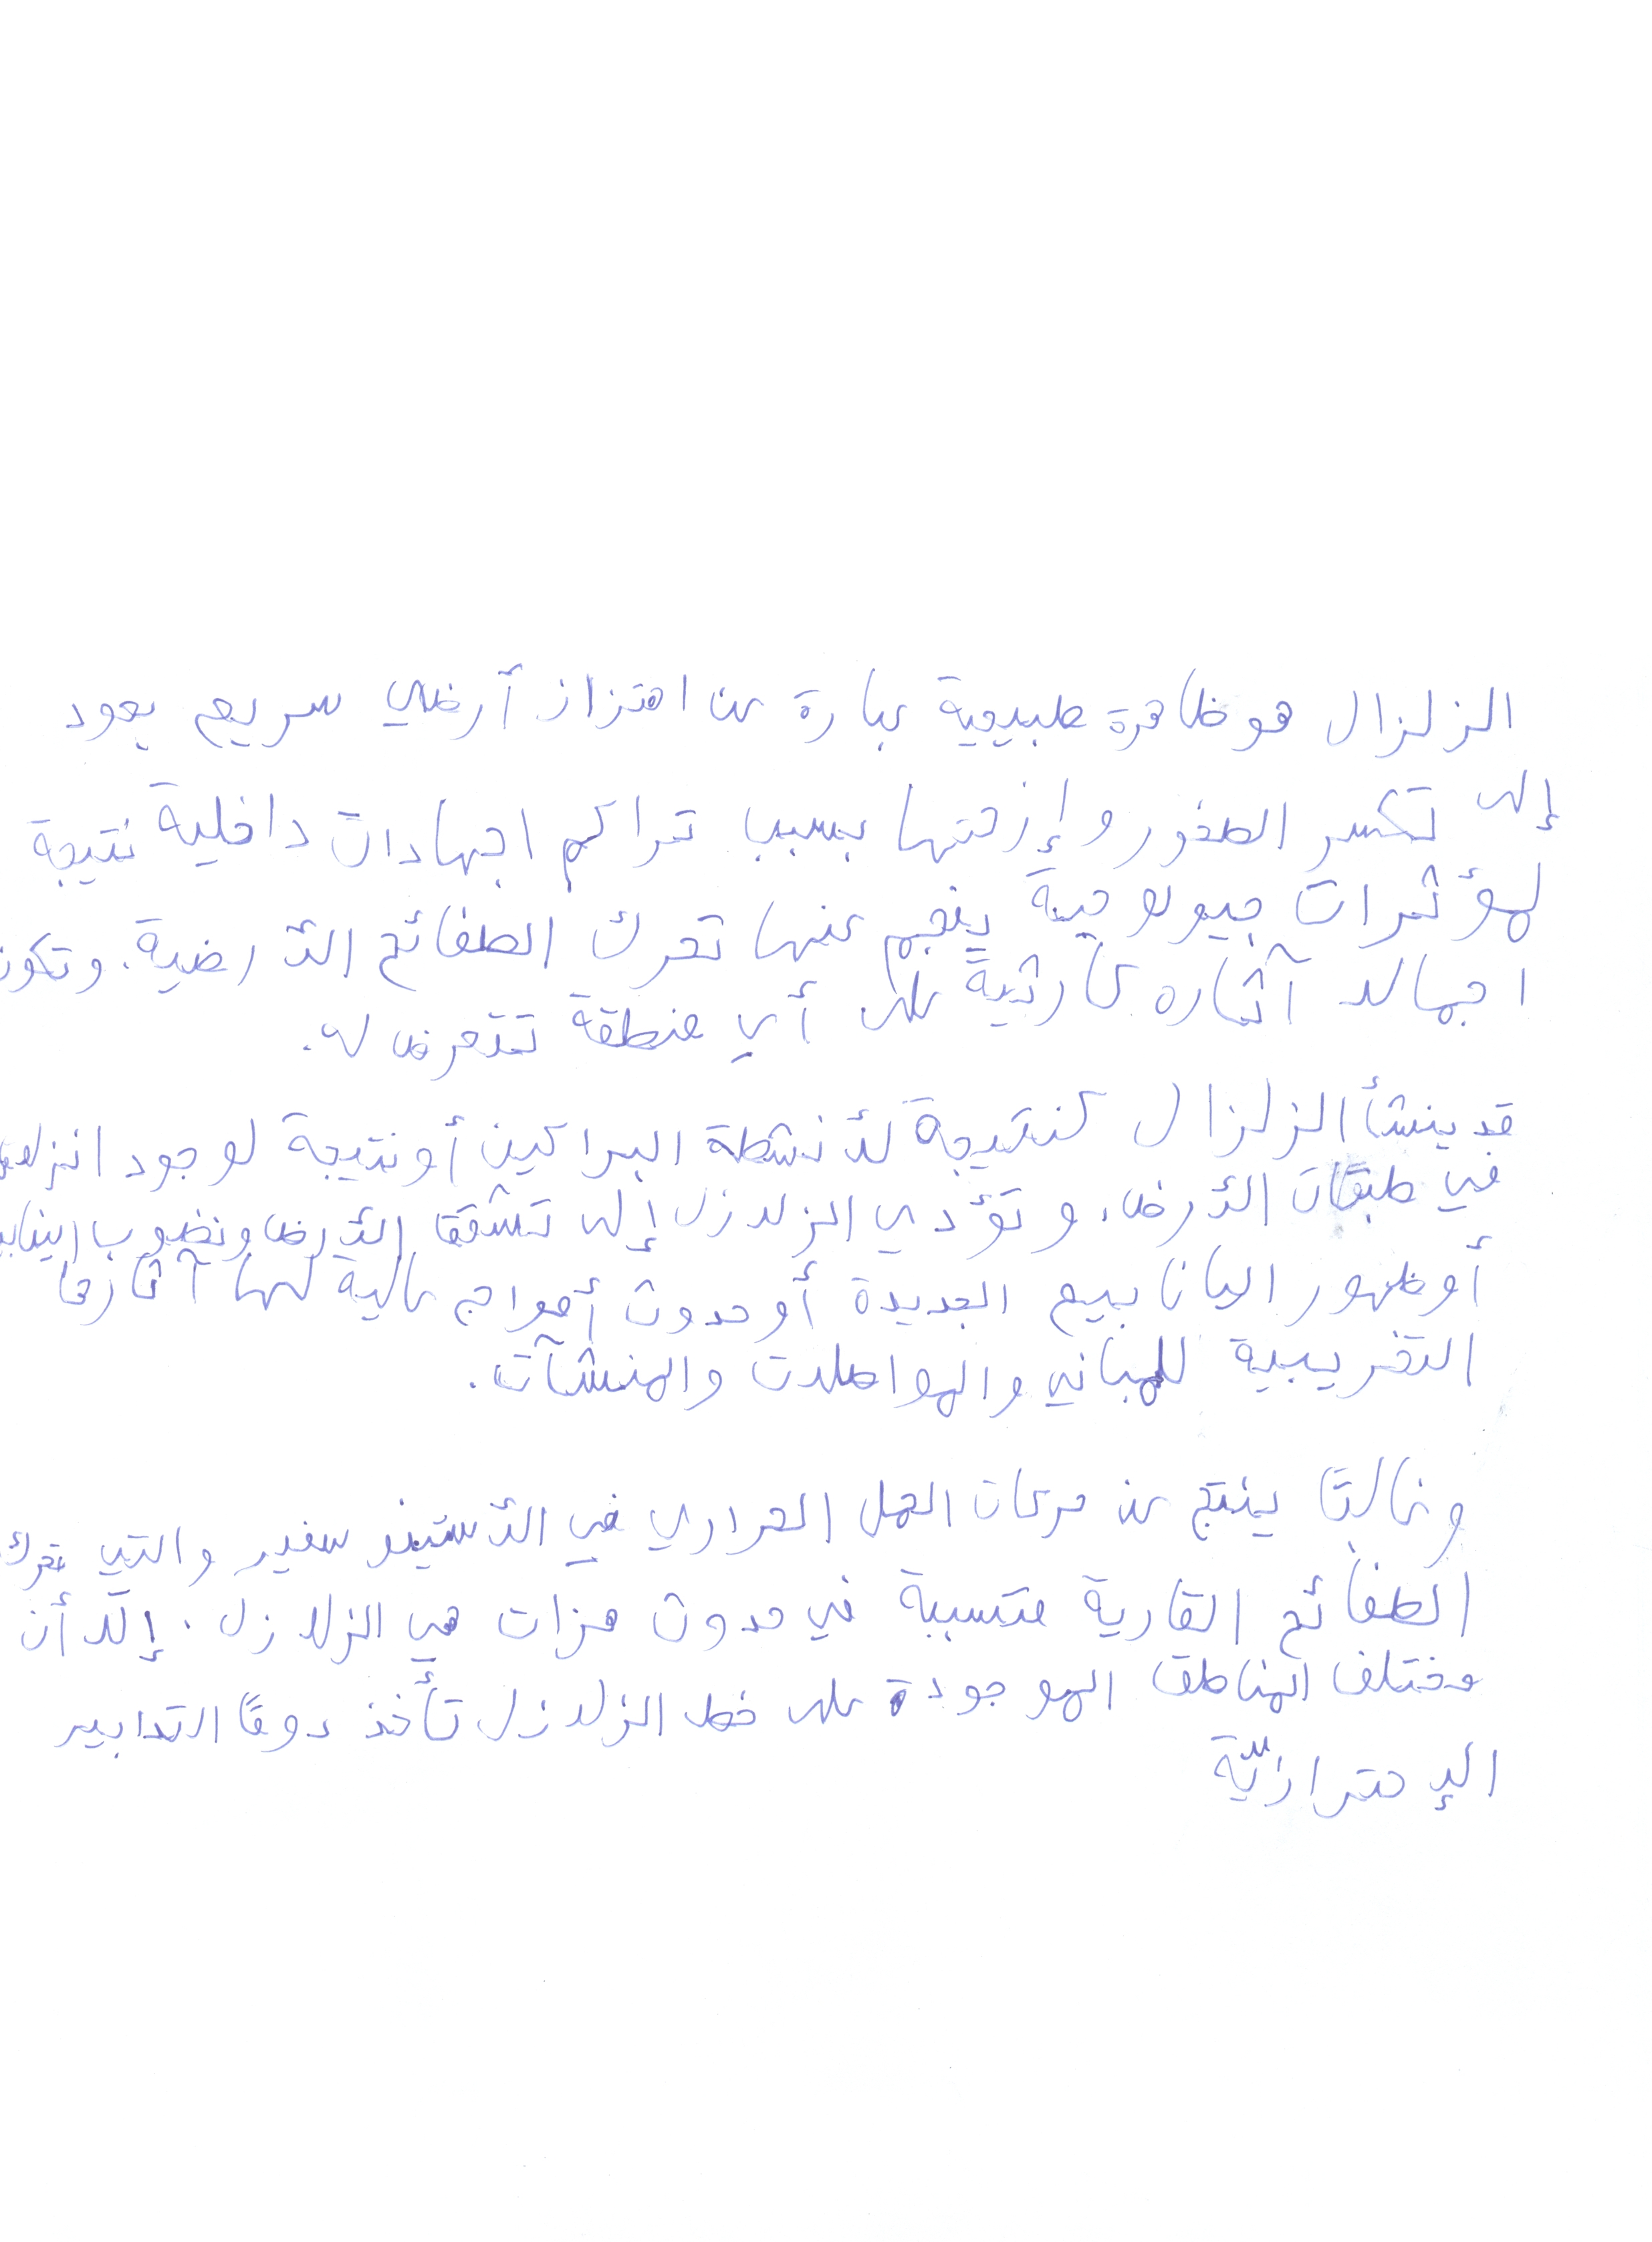 الزلزال هو ظاهرة طبيعية عبارة عن اهتزاز أرضي سريع يعود
إلى تكسر الصخور وإزحتها بسبب تراكم اجهادات داخلية نتيجة
لمؤثرات جيولوجية ينجم عنها تحرك الصفائح الأرضية. وتكون
اجمالا آثاره كارثية على أي منطقة تتعرض له.
قد ينشأ الزلزال كنتيجة لأنشطة البراكين أو نتيجة لوجود
في طبقات الأرض. و تؤدي الزلازل إلى تشقق الأرض ونضوب
أو ظهور اليانابيع الجديدة أو حدوث أمواج عالية لها آثارها
التخريبية للمباني والمواصلات والمنشآت.
وغالبًا ينتج عن حركات الحمل الحراري في الأستينوسفير والتي تحرك
الصفائح القارية متسببة في حدوث هزات هي الزلازل. إلّا أن
مختلف المناطق الموجودة على خط الزلازل تأخذ دومًا التدابير
الإحترازيّة